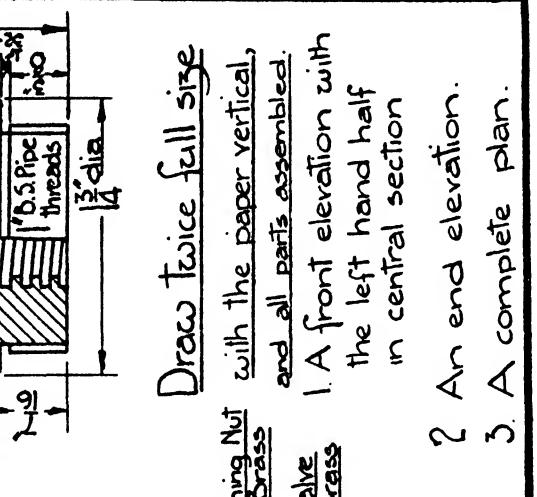 1" B.S. Pipe
threads
1 3/4" dia
Draw twice full size
with the paper vertical,
and all parts assembled.
1. A front elevation with
the left hand half
in central section
2 An end elevation.
3. A complete plan.
ning Nut
Brass
alve
rass